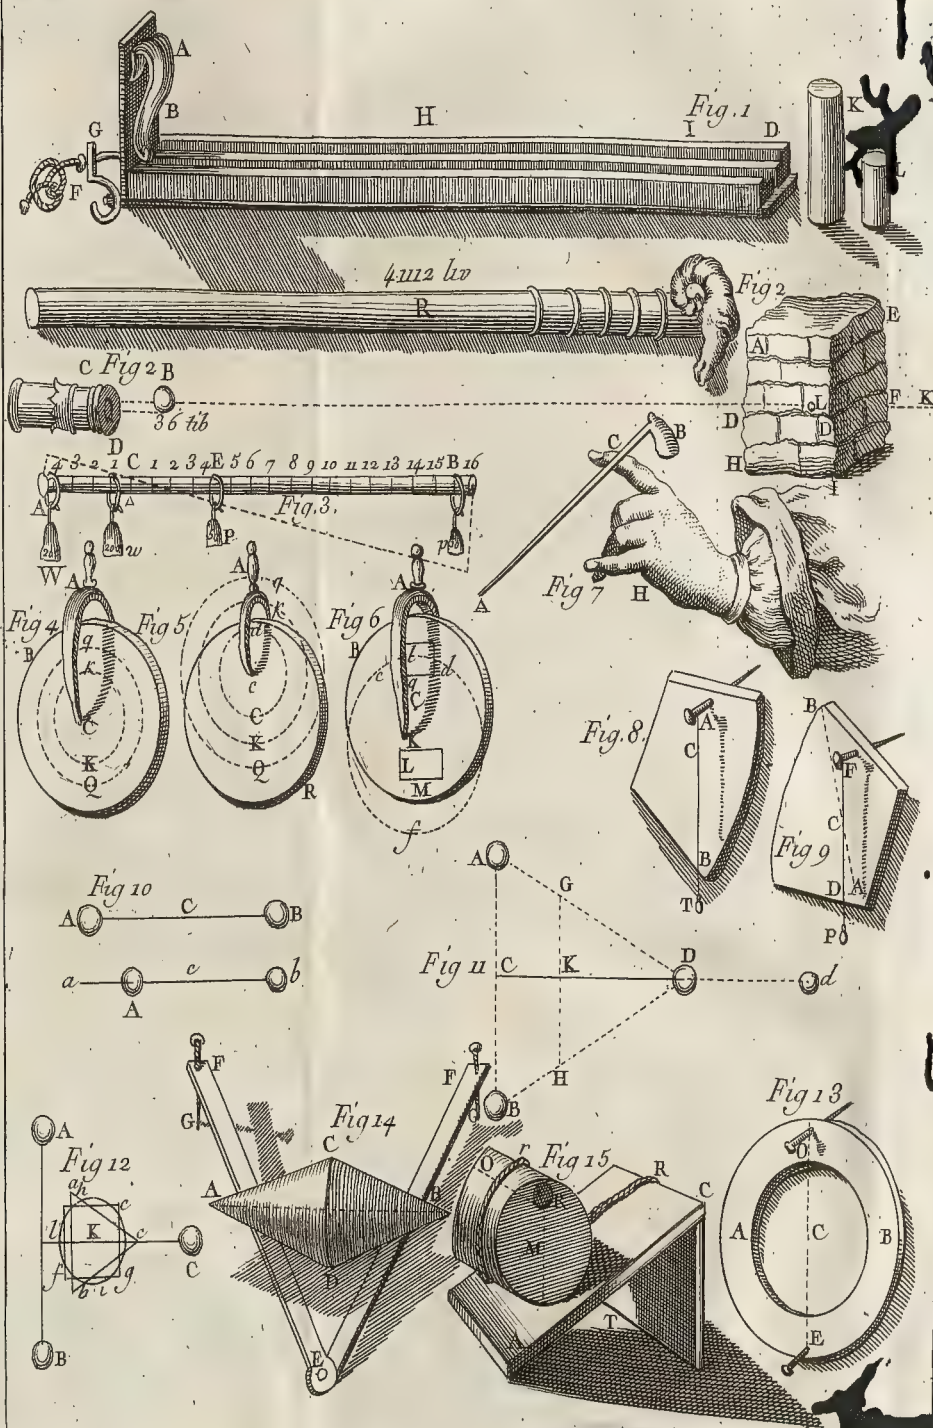 A
B
H
Fig.1
I
D
K
L
G
F
4.1112 liv
R
Fig 2
E
A
L
D
D
F
K
H
I
C Fig 2 B
36 lib
4 3 2 1 C 1 2 3 4 E 5 6 7 8 9 10 11 12 13 14 15 B 16
D
A
Fig.3.
W
w
P
p
C
B
A
Fig 7
H
Fig 4
A
B
q
k
C
K
Q
Fig 5
A
q
k
a
c
C
K
Q
R
Fig 6
A
B
c
l
d
q
C
K
L
M
f
Fig.8.
A
C
B
T
B
F
C
Fig 9
D
A
P
Fig 10
A
C
B
a
c
b
A
A
G
Fig 11
C
K
D
d
H
B
Fig 12
A
a h
c
l
K
e
f
b i g
C
B
F
F
G
Fig 14
C
A
B
D
E
O
r
Fig 15
R
R
C
M
A
T
Fig 13
O
A
C
B
E